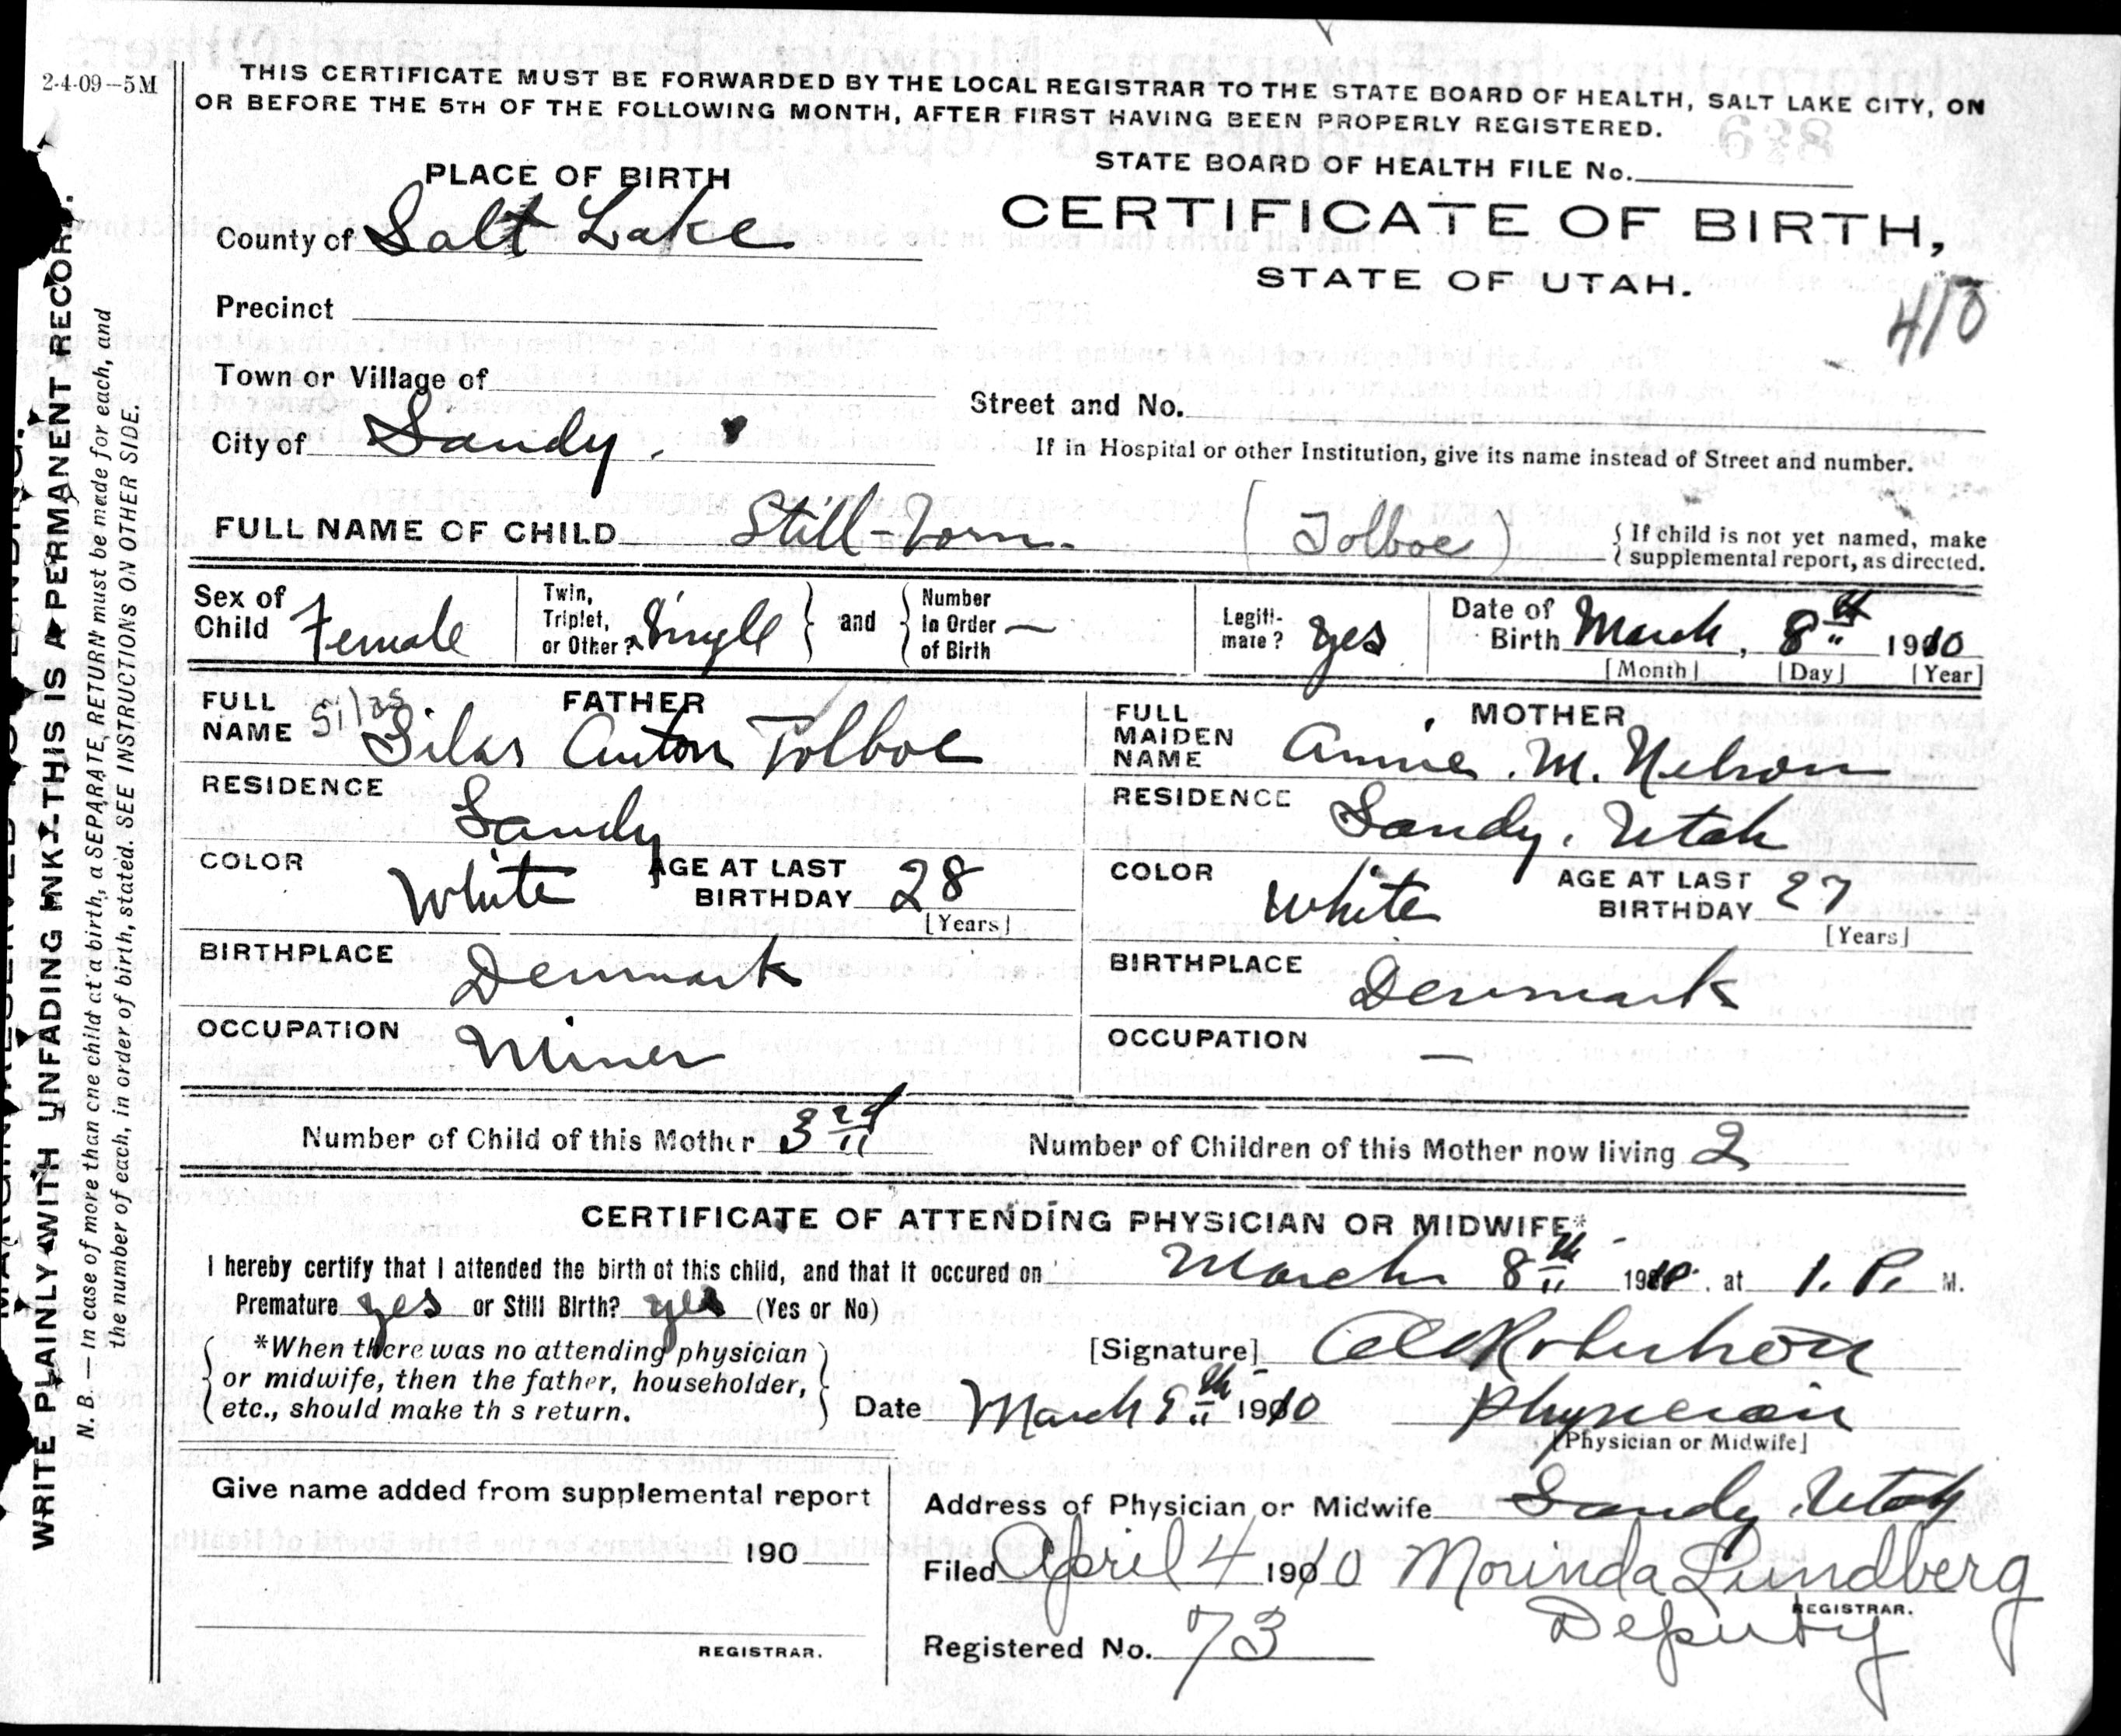 2-4-09--5M
THIS CERTIFICATE MUST BE FORWARDED BY THE LOCAL REGISTRAR TO THE STATE BOARD OF HEALTH, SALT LAKE CITY, ON
OR BEFORE THE 5TH OF THE FOLLOWING MONTH, AFTER FIRST HAVING BEEN PROPERLY REGISTERED.
WRITE PLAINLY WITH UNFADING INK--THIS IS A PERMANENT RECORD.
N. B.--In case of more than one child at a birth, a SEPARATE RETURN must be made for each, and
the number of each, in order of birth, stated. SEE INSTRUCTIONS ON OTHER SIDE.
PLACE OF BIRTH
STATE BOARD OF HEALTH FILE No.
County of Salt Lake
CERTIFICATE OF BIRTH,
STATE OF UTAH.
410
Precinct
Town or Village of
Street and No.
City of Sandy.
If in Hospital or other Institution, give its name instead of Street and number.
FULL NAME OF CHILD Still-born. (Tolboe)
{ If child is not yet named, make
{ supplemental report, as directed.
Sex of Child Female
Twin, Triplet, or Other? Single } and { Number In Order of Birth —
Legiti-mate? yes
Date of Birth March, 8th 1910
[Month] [Day] [Year]
FATHER
FULL NAME Silas Silas Anton Tolboe
RESIDENCE Sandy
COLOR White AGE AT LAST BIRTHDAY 28
[Years]
BIRTHPLACE Denmark
OCCUPATION Miner
MOTHER
FULL MAIDEN NAME Annie. M. Nelson
RESIDENCE Sandy, Utah
COLOR White AGE AT LAST BIRTHDAY 27
[Years]
BIRTHPLACE Denmark
OCCUPATION —
Number of Child of this Mother 3rd
Number of Children of this Mother now living 2
CERTIFICATE OF ATTENDING PHYSICIAN OR MIDWIFE*
I hereby certify that I attended the birth of this child, and that it occured on March 8th 1910. at 1. P. M.
Premature yes or Still Birth? yes (Yes or No)
*When there was no attending physician
or midwife, then the father, householder,
etc., should make th s return.
[Signature] Robertson
Date March 9th 1910 Physician
[Physician or Midwife]
Give name added from supplemental report
190
REGISTRAR.
Address of Physician or Midwife Sandy, Utah
Filed April 4 1910 Mounda Lundberg
REGISTRAR.
Deputy
Registered No. 73